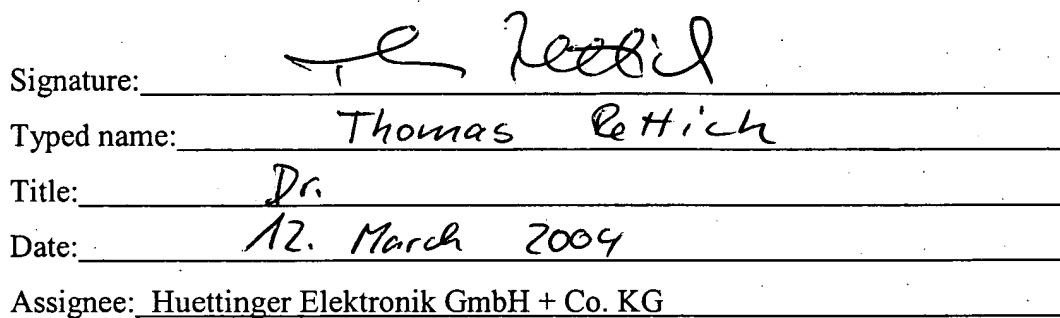 Signature: Th Rettich
Typed name: Thomas Rettich
Title: Dr.
Date: 12. March 2004
Assignee: Huettinger Elektronik GmbH + Co. KG